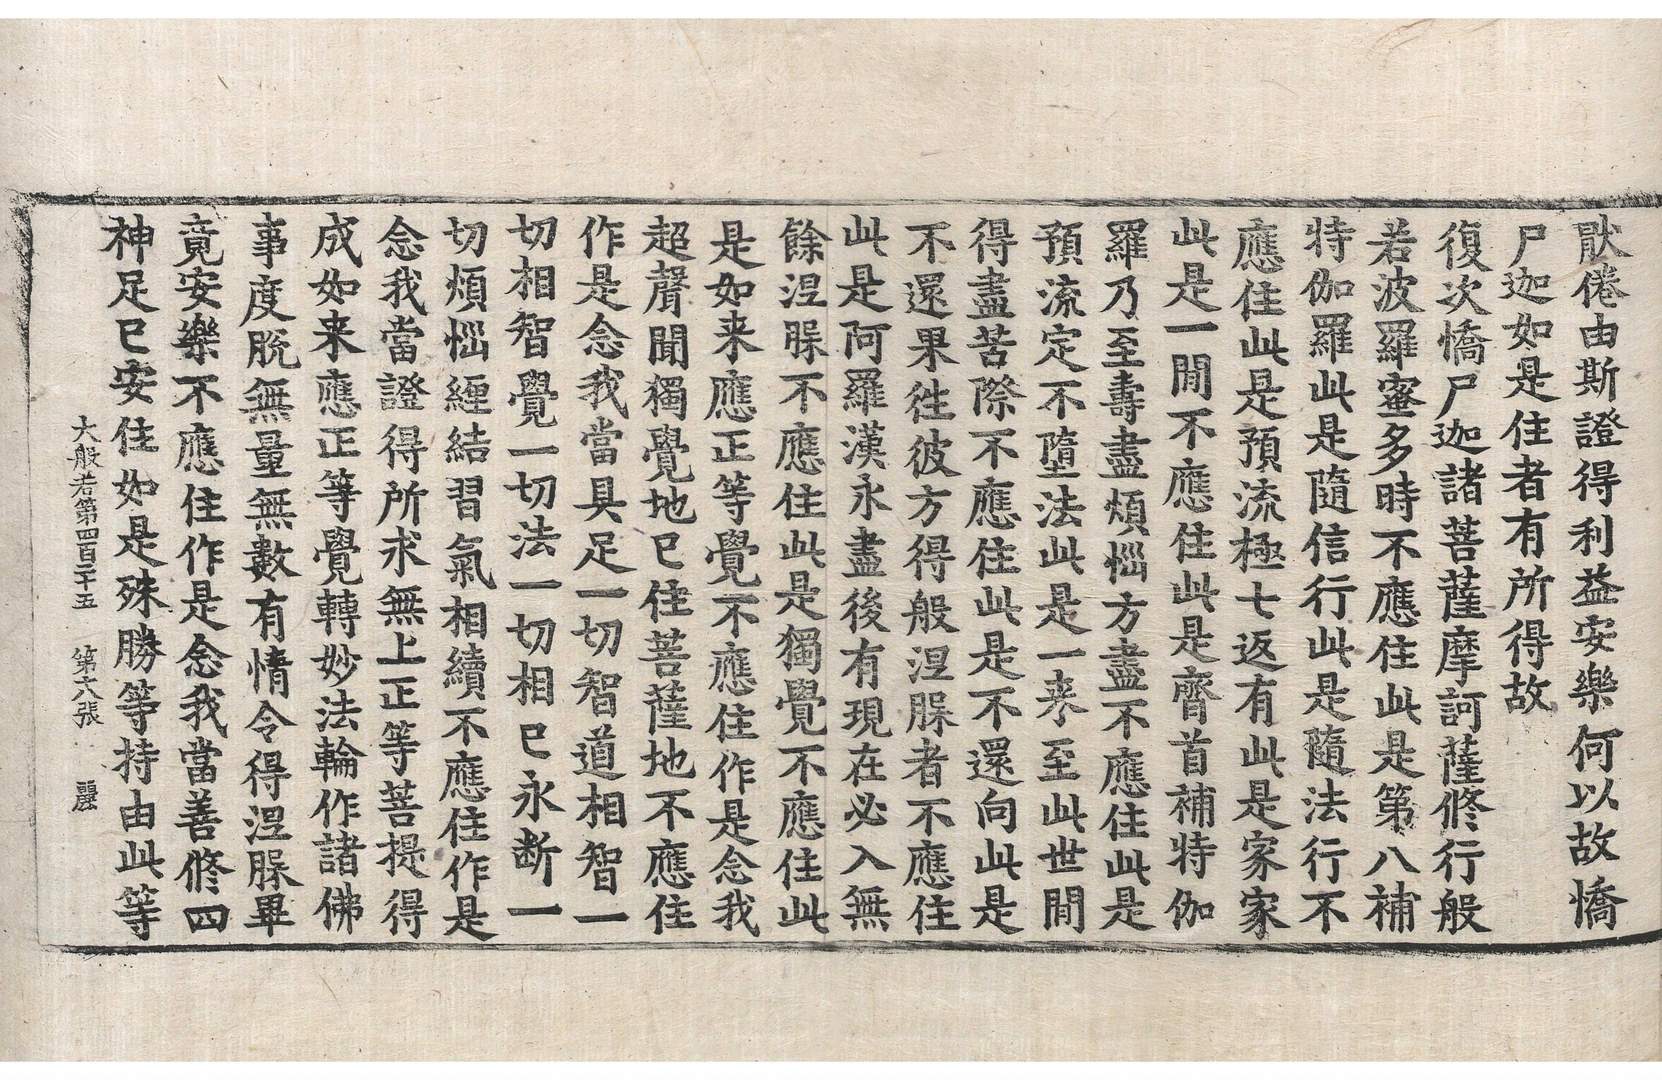 猒倦由斯證得利益安樂何以故憍
尸迦如是住者有所得故
復次憍尸迦諸菩薩摩訶薩修行般
若波羅蜜多時不應住此是第八補
特伽羅此是隨信行此是隨法行不
應住此是預流極七返有此是家家
此是一閒不應住此是齊首補特伽
羅乃至壽盡盡煩惱方盡不應住此是
預流定不墮法此是一来至此世閒
得盡苦際不應住此是不還向此是
不還果徃彼方得般涅槃者不應住
此是阿羅漢永盡後有現在必入無
餘涅槃不應住此是獨覺不應住此
是如来應正等覺不應住作是念我
超聲聞獨覺地已住菩薩地不應住
作是念我當具足一切智道相智一
切相智覺一切法一切相已永断一
切煩惱纏結習氣相續不應住作是
念我當證得所求無上正等菩提得
成如来應正等覺轉妙法輪作諸佛
事度脫無量無數有情令得涅槃畢
竟安樂不應住作是念我當善修四
神足已安住如是殊勝等持由此等
大般若第四百二十五 第六張 麗